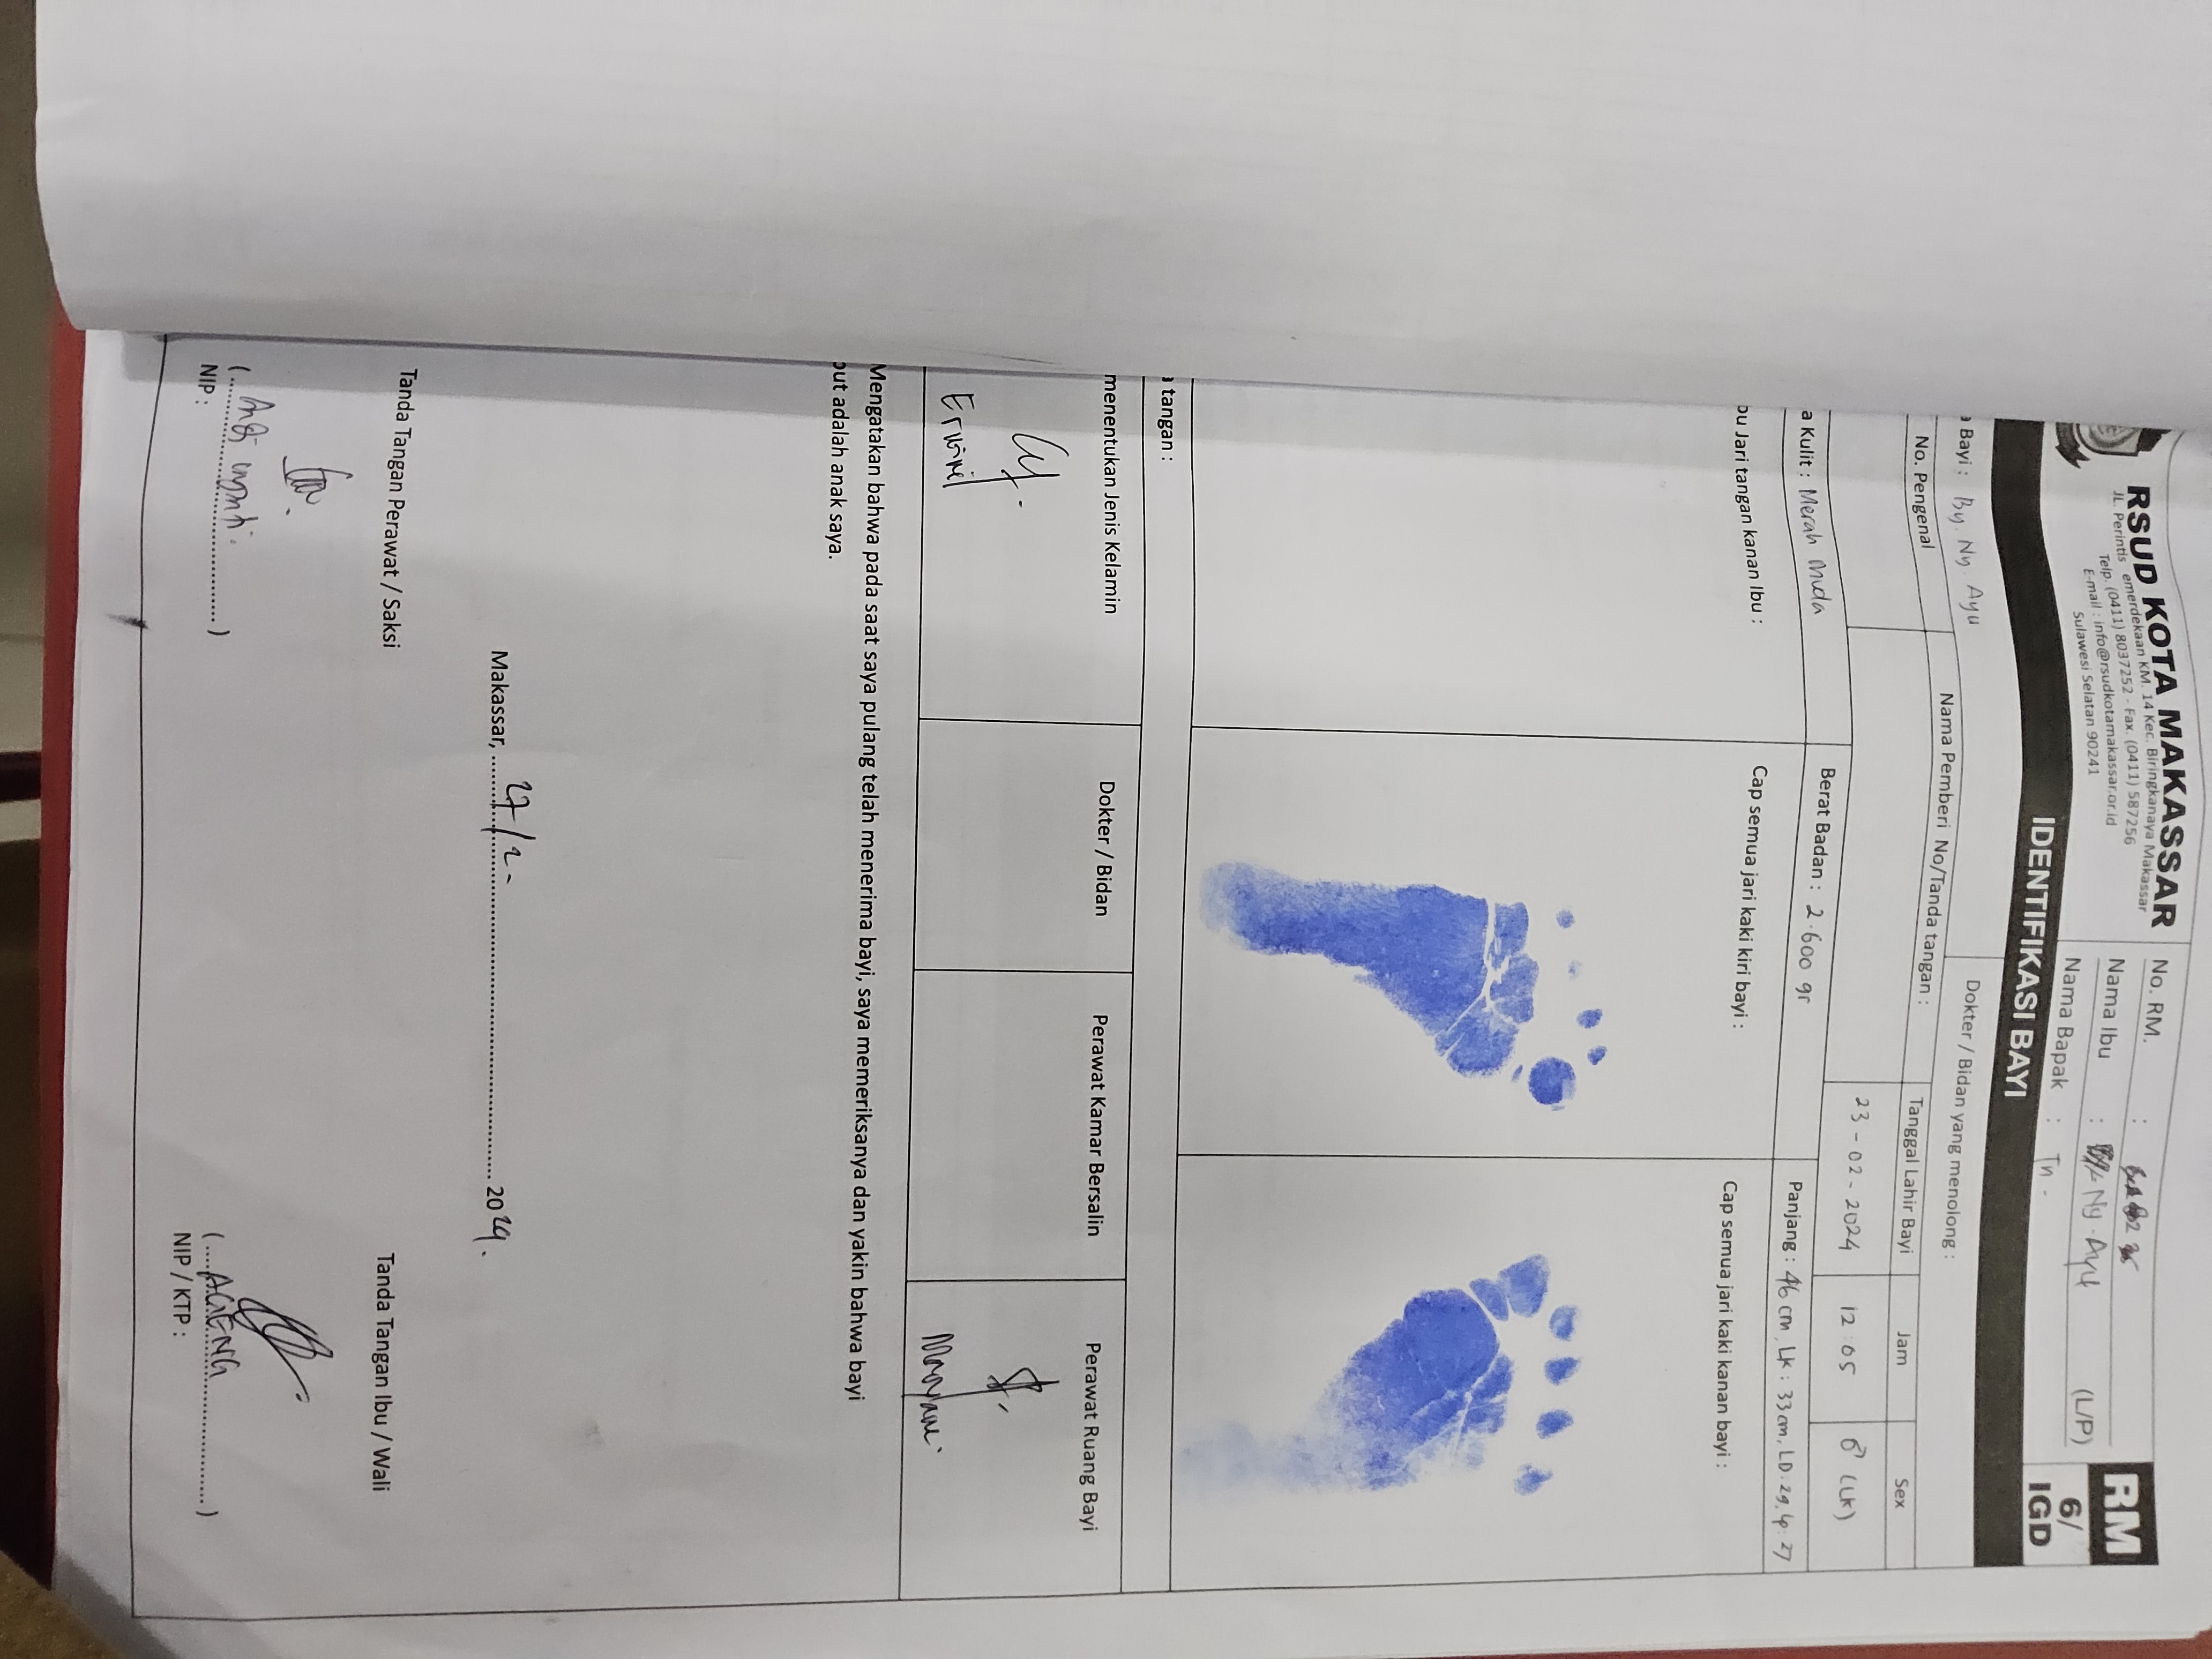 RSUD KOTA MAKASSAR
JL. Perintis emerdekaan KM. 14 Kec. Biringkanaya Makassar
Telp. (0411) 8037252 - Fax. (0411) 587256
E-mail : info@rsudkotamakassar.or.id
Sulawesi Selatan 90241
No. RM. :
Nama Ibu : Ny. Ayu (L/P)
Nama Bapak : Tn -
RM
6/
IGD
IDENTIFIKASI BAYI
a Bayi : By. Ny. Ayu
Dokter / Bidan yang menolong :
No. Pengenal
Nama Pemberi No/Tanda tangan :
Tanggal Lahir Bayi
Jam
Sex
23 - 02 - 2024
12 : 05
♂ (LK)
a Kulit : Merah Muda
Berat Badan : 2.600 gr
Panjang : 46 cm, LK : 33 cm, LD : 29, LP : 27
bu Jari tangan kanan Ibu :
Cap semua jari kaki kiri bayi :
Cap semua jari kaki kanan bayi :
a tangan :
menentukan Jenis Kelamin
Dokter / Bidan
Perawat Kamar Bersalin
Perawat Ruang Bayi
Mengatakan bahwa pada saat saya pulang telah menerima bayi, saya memeriksanya dan yakin bahwa bayi
but adalah anak saya.
Makassar, 27/2- 2024.
Tanda Tangan Perawat / Saksi
Tanda Tangan Ibu / Wali
(.... AGENG ....)
NIP :
NIP / KTP :